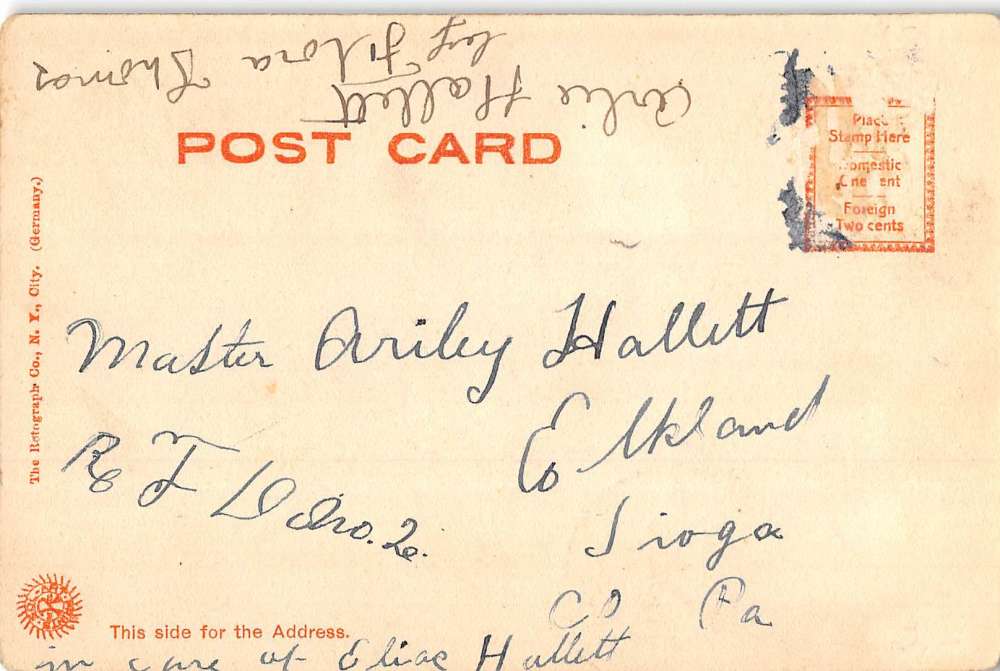 Arlie Hallett
by Flora Thomas
POST CARD
Place
Stamp Here
Domestic
One Cent
Foreign
Two cents
The Rotograph Co., N. Y., City. (Germany.)
Master Ariley Hallett
R F D No. 2.
Elkland
Tioga
Co Pa
This side for the Address.
in care of Elias Hallett